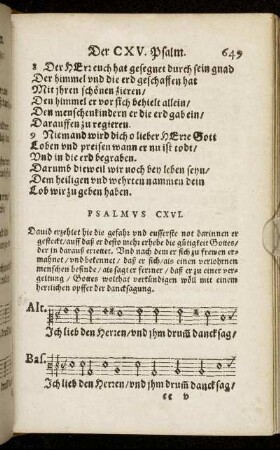 Der CXV. Psalm. 649
8 Der HErr euch hat gesegnet durch sein gnad
Der himmel vnd die erd geschaffen hat
Mit jhren schönen zieren/
Den himmel er vor sich behielt allein/
Den menschenkindern er die erd gab ein/
Darauffen zu regieren.
9 Niemand wird dich o lieber HErre Gott
Loben vnd preisen wann er nu ist todt/
Vnd in die erd begraben.
Darumb dieweil wir noch bey leben seyn/
Dem heiligen vnd wehrten nammen dein
Lob wir zu geben haben.
PSALMVS CXVI.
Dauid erzehlet hie die gefahr vnd eusserste not darinnen er
gesteckt/ auff daß er desto mehr erhebe die gütigkeit Gottes/
der in darauß errettet. Vnd nach dem er sich zu frewen er-
mahnet/ vnd bekennet/ daß er sich/ als einen verlohrnen
menschen befinde/ als sagt er ferrner/ daß er zu einer ver-
geltung/ Gottes wolthat verkündigen wöll mit einem
herrlichen opffer der dancksagung.
Alt.
Ich lieb den Herren/ vnd jhm drum̃ danck sag/
Bas.
Ich lieb den Herren/ vnd jhm drum̃ danck sag/
cc v